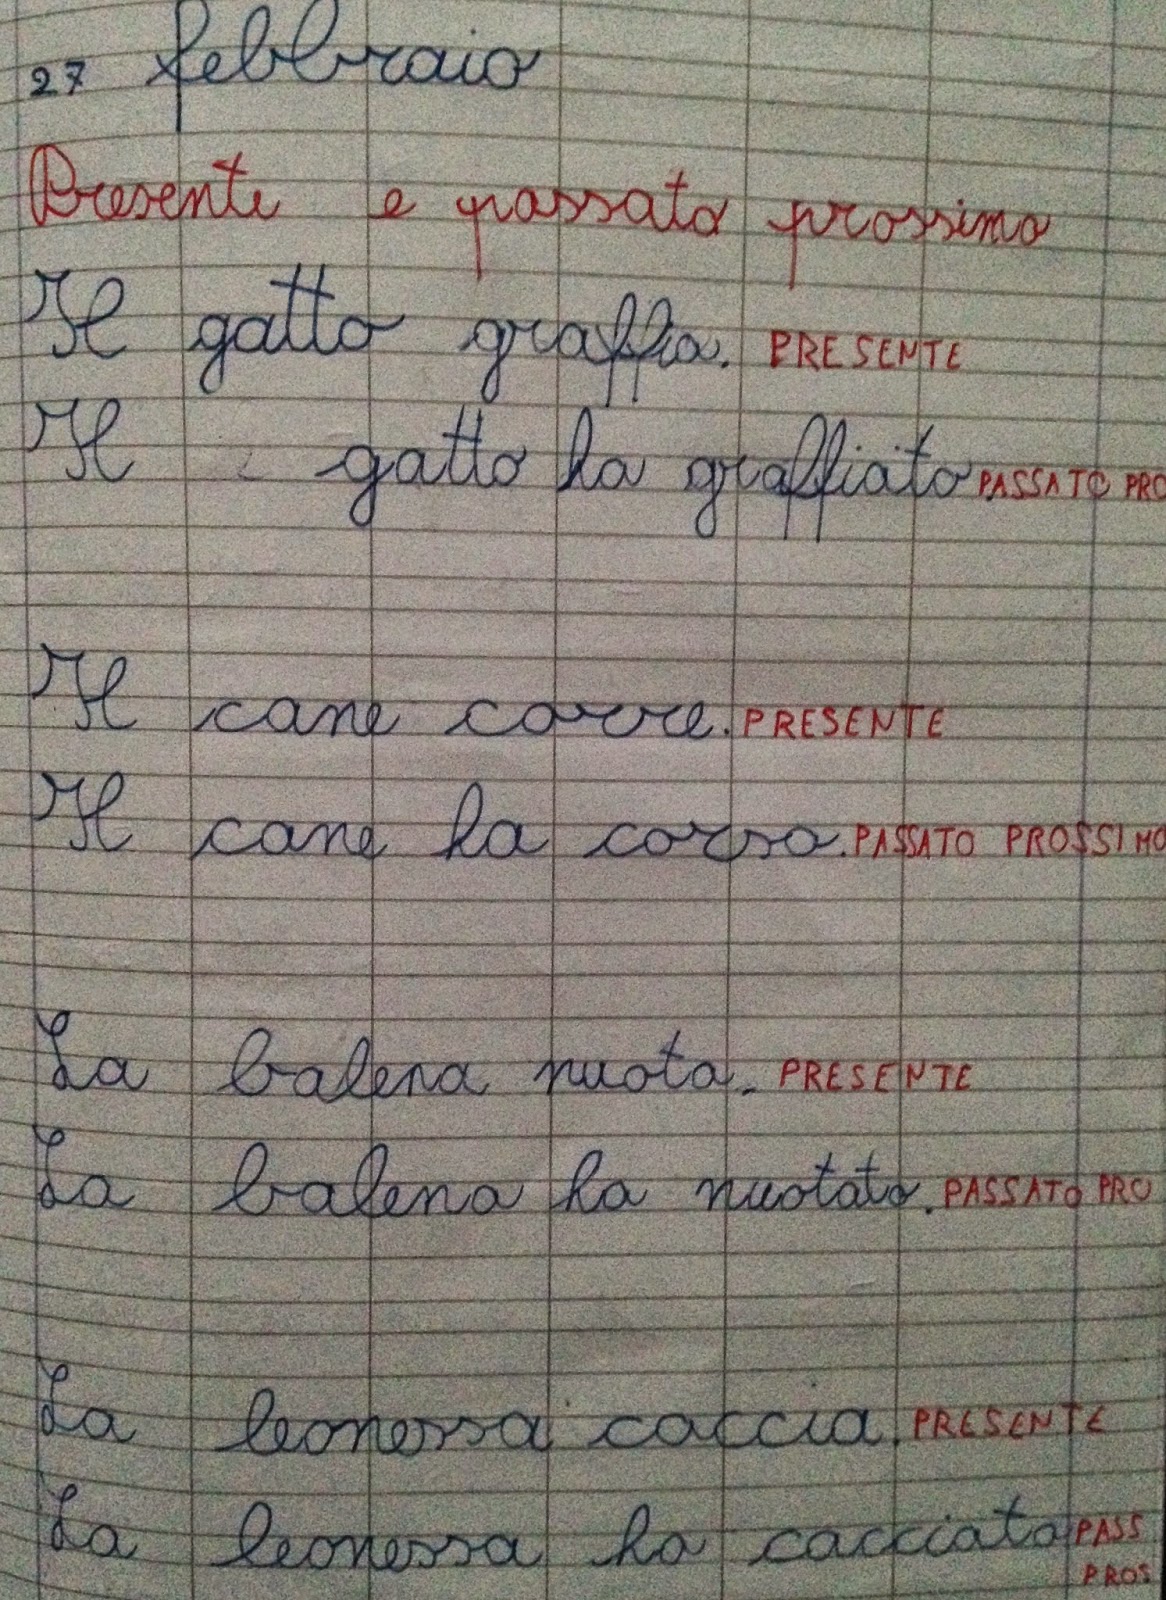 27 febbraio
Presente e passato prossimo
Il gatto graffia. PRESENTE
Il gatto ha graffiato PASSATO PRO
Il cane corre. PRESENTE
Il cane ha corso. PASSATO PROSSIMO
La balena nuota. PRESENTE
La balena ha nuotato. PASSATO PRO
La leonessa caccia. PRESENTE
La leonessa ha cacciato PASS
PROS